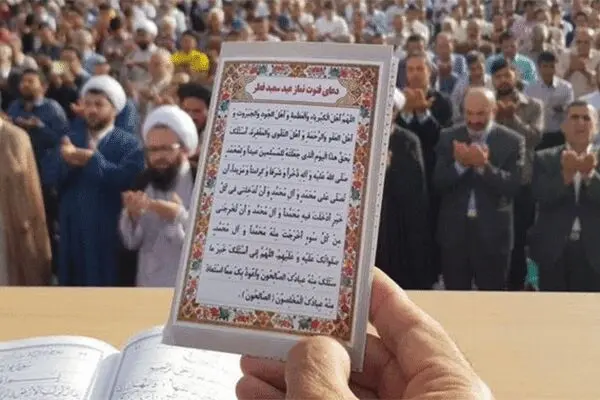 دعای قنوت نماز عید سعید فطر
اللهُمَّ اَهْلَ الْکِبْرِیاءِ وَ الْعَظَمَةِ وَ اَهْلَ الْجُودِ وَ الْجَبَرُوتِ وَ
اَهْلَ الْعَفْوِ وَ الرَّحْمَةِ وَ اَهْلَ التَّقْوی وَ الْمَغْفِرَةِ اَسْئَلُکَ
بِحَقِّ هذَا الْیَومِ الَّذی جَعَلْتَهُ لِلْمُسْلِمینَ عیداً وَ لِمُحَمَّدٍ
صَلَّی اللهُ عَلَیْهِ وَ آلِهِ ذُخْراً وَ شَرَفًا وَ کَرامَةً وَ مَزیداً، اَنْ
تُصَلِّیَ عَلی مُحَمَّدٍ وَ آلِ مُحَمَّدٍ وَ اَنْ تُدْخِلَنی فی کُلِّ
خَیْرٍ اَدْخَلْتَ فیهِ مُحَمَّداً وَ آلَ مُحَمَّدٍ وَ اَنْ تُخْرِجَنی
مِنْ کُلِّ سُوءٍ اَخْرَجْتَ مِنْهُ مُحَمَّداً وَ آلَ مُحَمَّدٍ
صَلَواتُکَ عَلَیْهِ وَ عَلَیْهِمْ، اَللّهُمَّ اِنّی اَسْئَلُکَ خَیْرَ ما
سَئَلَکَ مِنْهُ عِبادُکَ الصّالِحُونَ وَ اَعُوذُ بِکَ مِمَّا اسْتَعاذَ
مِنْهُ عِبادُکَ الْمُخْلِصُونَ (الصّالِحُونَ).